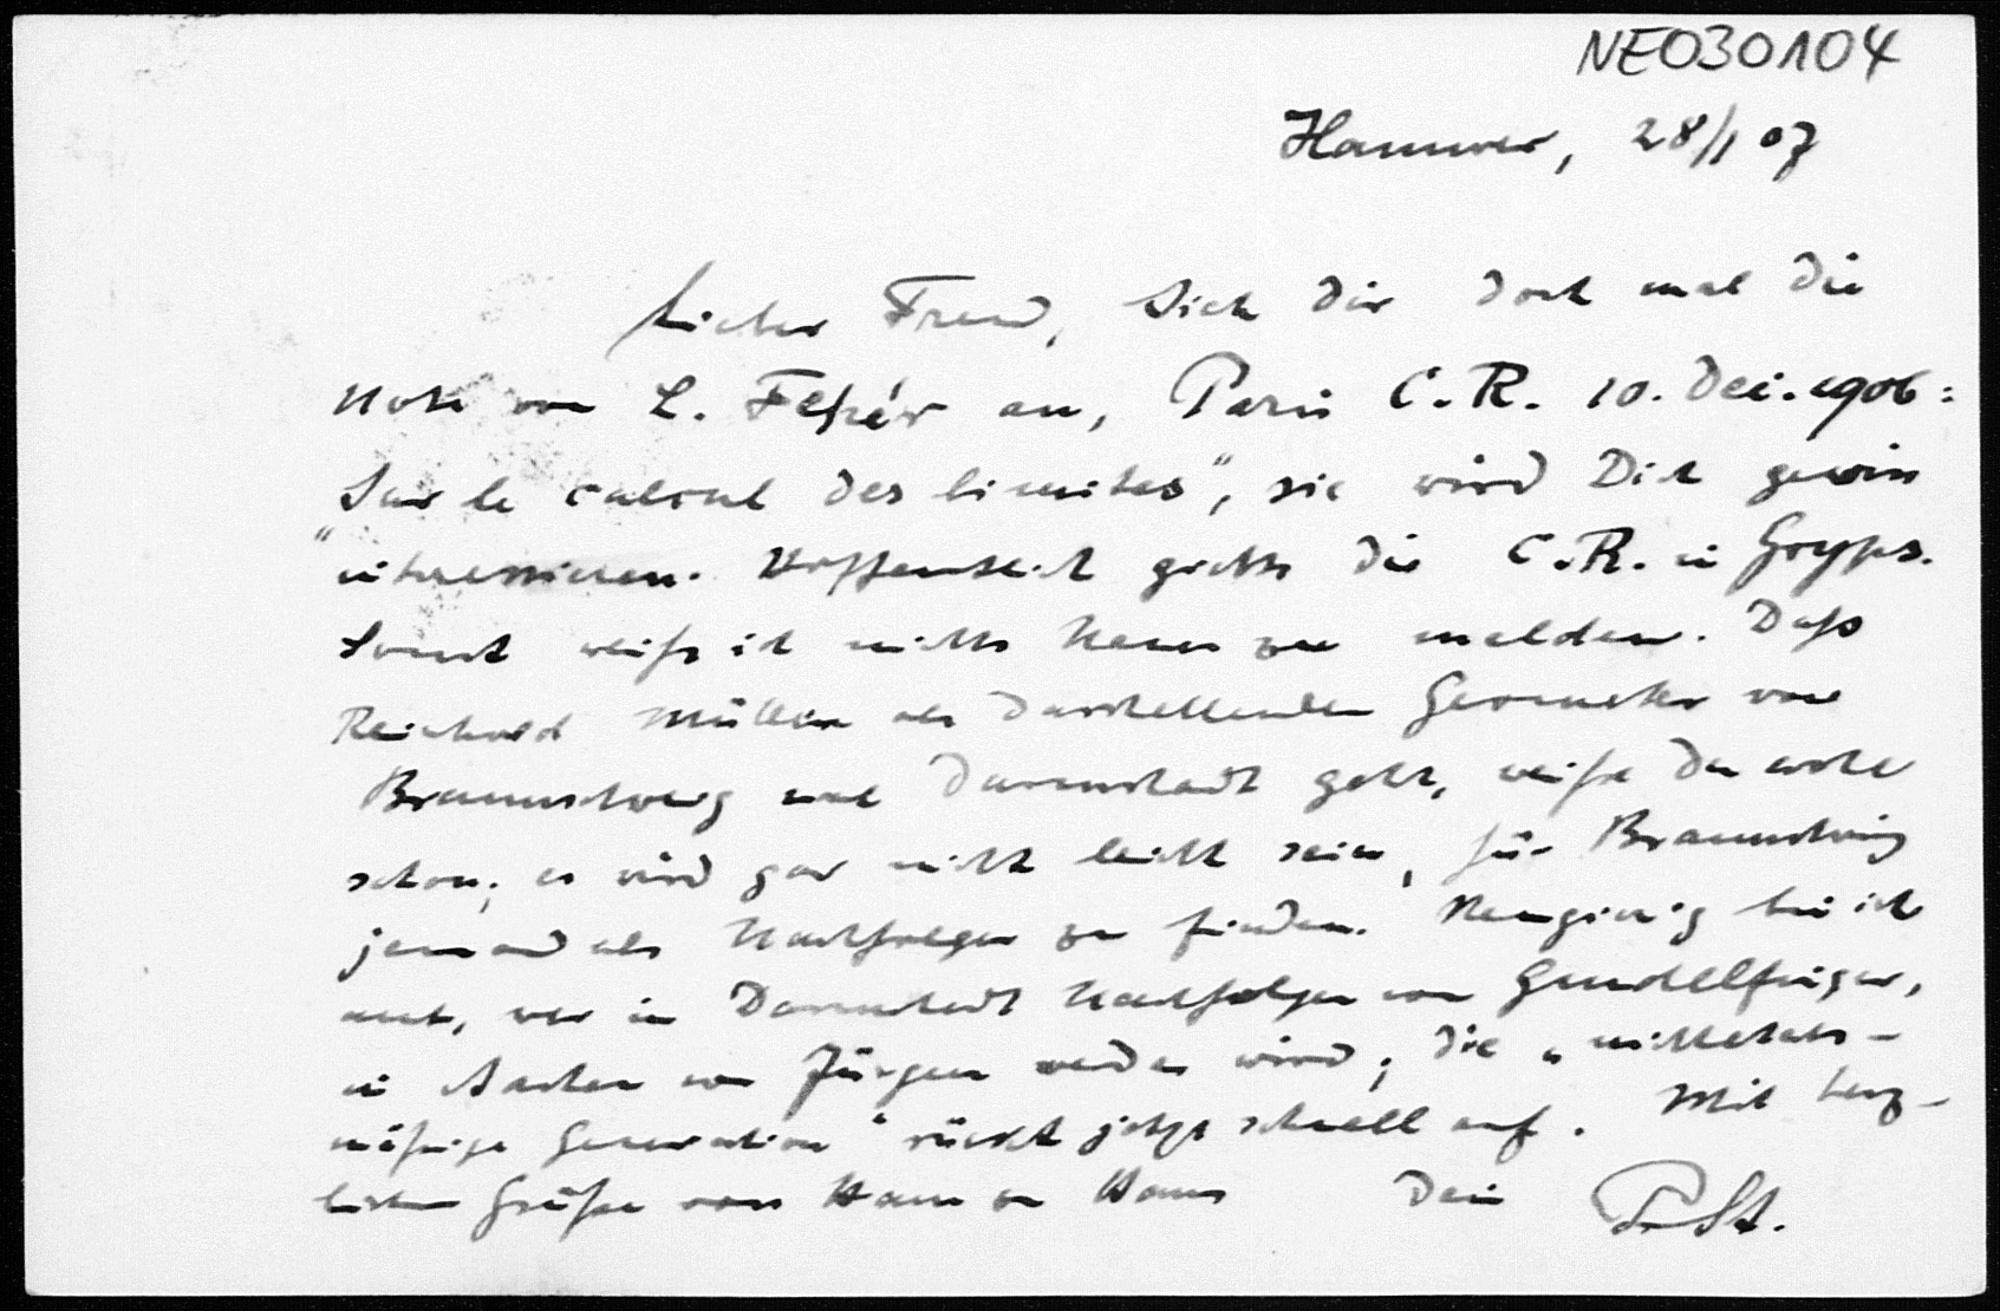 NE030104
Hannover, 28/1 07
Lieber Freund, Sieh Dir doch mal die
Note von L. Fejér an, Paris C. R. 10. Dec. 1906:
„Sur le calcul des limites“, sie wird Dich gewiss
interessieren. Hoffentlich giebts die C. R. in Gryps.
Sonst weiß ich nichts Neues zu melden. Daß
Reinhold Müller als darstellender Geometer von
Braunschweig nach Darmstadt geht, weißt Du wohl
schon; es wird gar nicht leicht sein, für Braunschweig
jemand als Nachfolger zu finden. Neugierig bin ich
auch, wer in Darmstadt Nachfolger von Gundelfinger,
in Aachen von Jürgens werden wird; die „mittelalter-
mäßige Generation“ rückt jetzt schnell auf. Mit herz-
lichen Grüßen von Haus zu Haus Dein P. St.